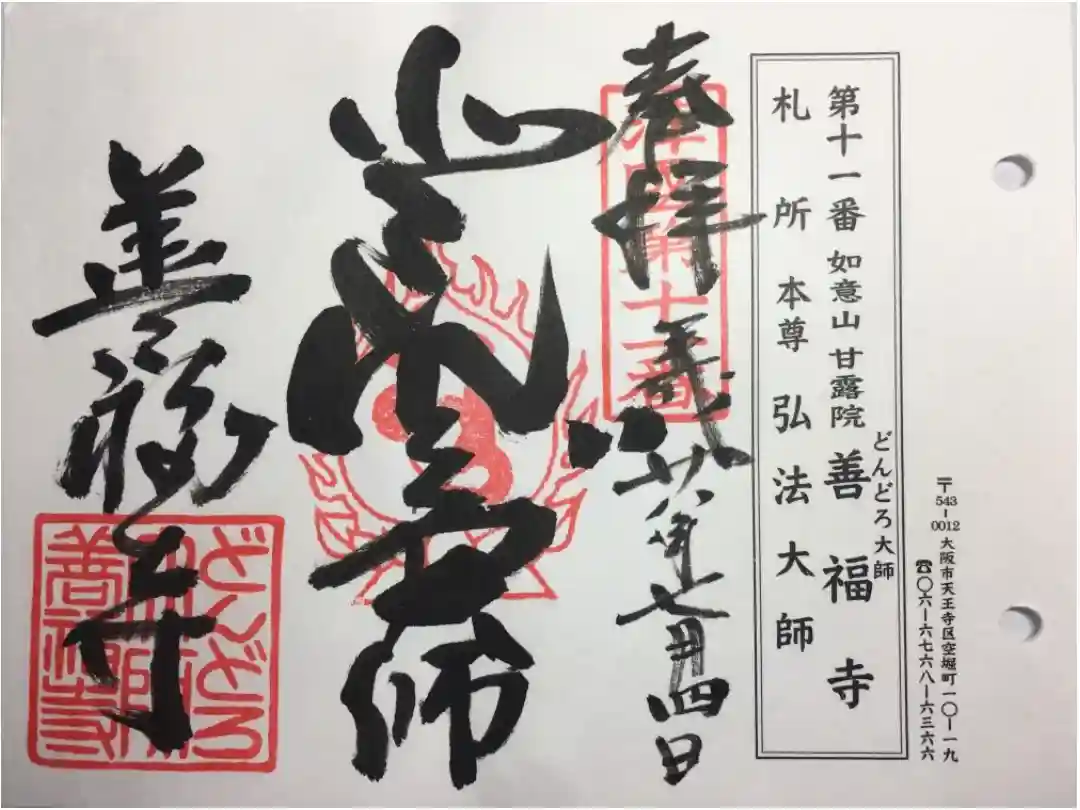 〒543-0012 大阪市天王寺区空堀町一〇-一九
☎〇六-六七六八-六三六六
どんどろ大師
第十一番 如意山 甘露院 善福寺
札所 本尊 弘法大師
奉拝
平成廿八年七月四日
大師
善福寺
どんどろ
大師
善福寺